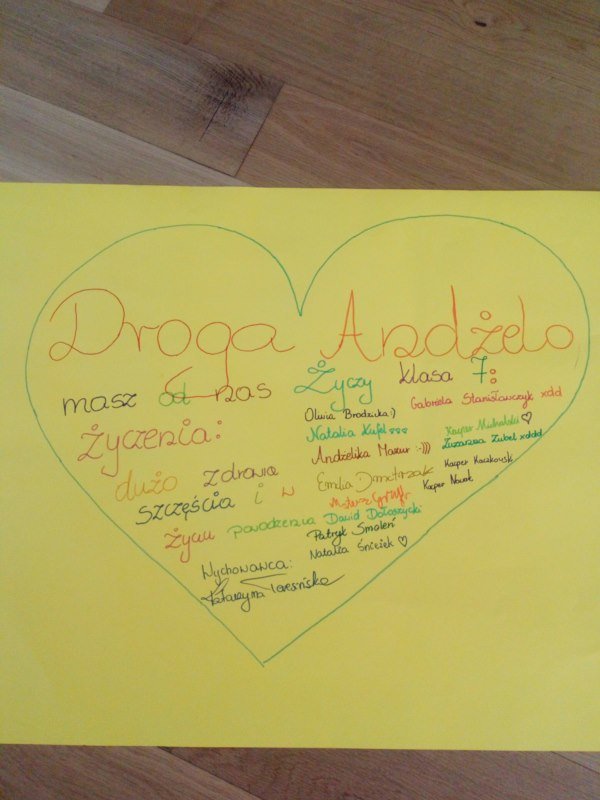 Droga Andżelo
masz od nas
życzenia:
dużo zdrowia
szczęścia i w
życiu powodzenia
Życzy klasa 7:
Oliwia Brodzicka:)
Natalia Kufel
Andżelika Mazur :-)))
Emilia
Mateusz
Dawid
Patryk Smoleń
Natalia Śnieżek ♡
Gabriela Stanisławczyk xdd
Kacper Michalski ♡
Zuzanna Zubel xddd
Kacper
Kacper Nowak
Wychowawca:
Katarzyna